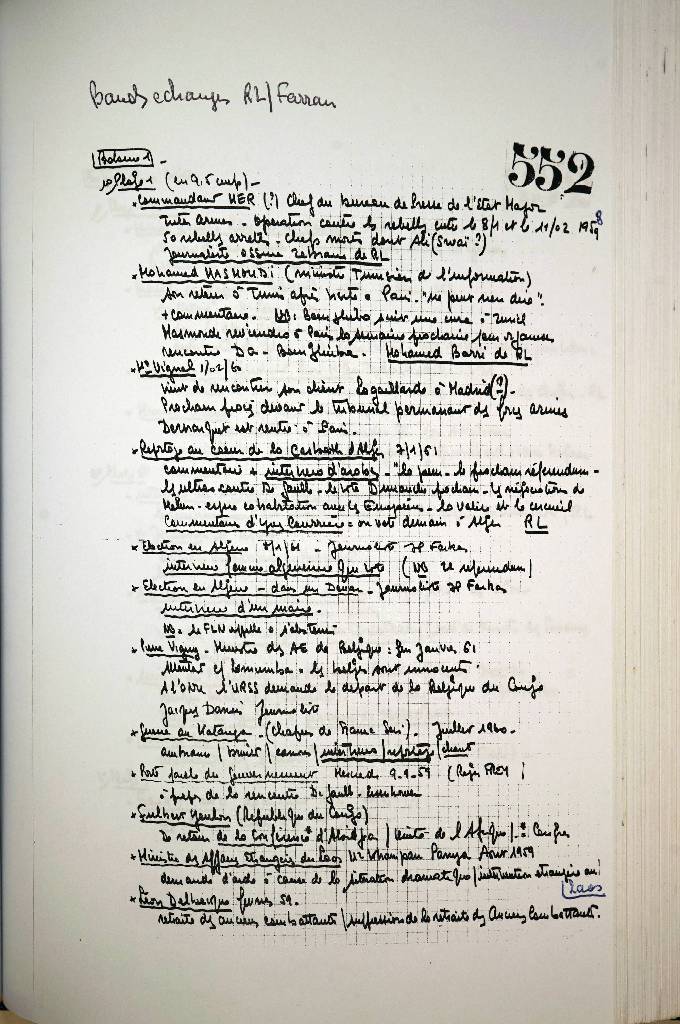 Bands echanges RL/Farran
552
Bobine 1 -
Plage 1 (en 9.5 cm/s) -
* Commandant MER (?) Chef du bureau de Presse de l'Etat Major
Inter Armes - Operation contre les rebelles entre le 8/1 et le 11/02 1958
50 rebelles arretés - chefs morts dont Ali (Swaï ?)
Journaliste de RL
* Mohamed MASMOUDI (ministre Tunisien de l'information)
son retour à Tunis après visite à Paris. "ne peut rien dire".
+ commentaire. NB: Bourghiba suit une cure à Zurich
Masmoudi reviendra à Paris la semaine prochaine pour organiser
rencontre DG - Bourghiba. Mohamed Barri de RL
* Me Vignal 1/02/60
vient de rencontrer son client Lagaillarde à Madrid (?) -
Prochain procès devant le tribunal permanent des forces armées
Demarquet est rentré à Paris.
* Reportage au coeur de la Casbah d'Alger 7/1/61
commentaire + interviews d'arabes - la peur - le prochain référendum -
les ultras contre De Gaulle - le vote Dimanche prochain - les négociations de
Melun - espoir cohabitation avec les Européens - la valise et le cercueil
Commentaire d'Yves Courrière = on vote demain à Alger RL
* Election en Algérie 8/1/61 - Journaliste JP Farkas
interview femme algérienne qui vote (NB 2e référendum)
* Election en Algérie - dans un Douar - Journaliste JP Farkas
interview d'un maire.
NB: le FLN appelle à s'abstenir
* Pierre Vigny - Ministre des AE de Belgique : Janvier 61
Lumumba - les belges sont innocents
A l'ONU l'URSS demande le départ de la Belgique du Congo
Jacques Journaliste
* Guerre au Katanga - (Chapus de France Soir) - Juillet 1960 -
ambiance / bruits / canons / interviews / reportage / chant
* Porte parole du Gouvernement Mercredi 9-9-59 (Roger FREY)
à propos de la rencontre De Gaulle - Eisenhower
* Fulbert Youlou (République du Congo)
De retour de la Conférence d'Abidjan / Unité de l'Afrique /
* Ministre des Affaires Etrangères du Laos Mr Khampan Panya Aout 1959
demande d'aide à cause de la situation dramatique / intervention étrangère au
Laos
* Léon Delbecque 59.
retraite des anciens combattants / suppression de la retraite des Anciens Combattants.